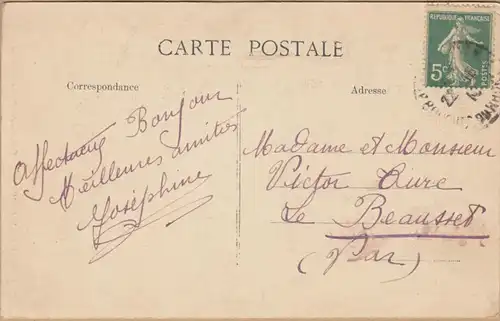 CARTE POSTALE
RÉPUBLIQUE FRANÇAISE
5c
POSTES
Correspondance
Adresse
Affectueux Bonjour
Meilleures amitiés
Joséphine
Madame et Monsieur
Victor Aure
Le Beausset
(Var)